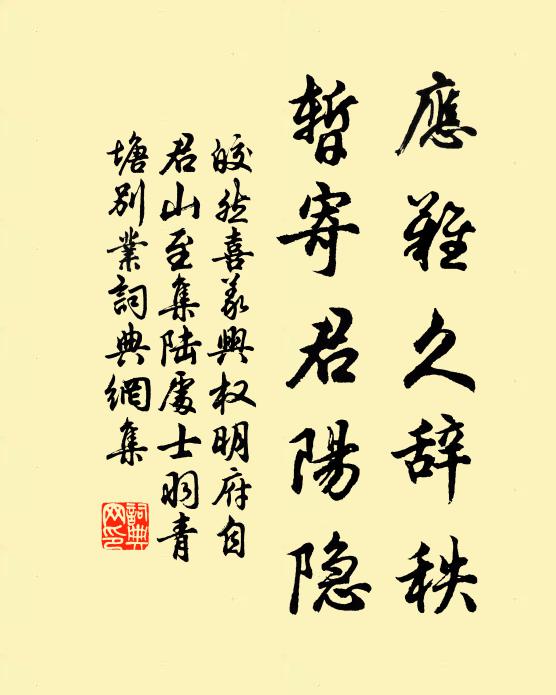 應難久辞秩
暫寄君陽隐
皎然喜義興权明府自
君山至集陆處士羽青
塘别業詞典網集
詞典
网印